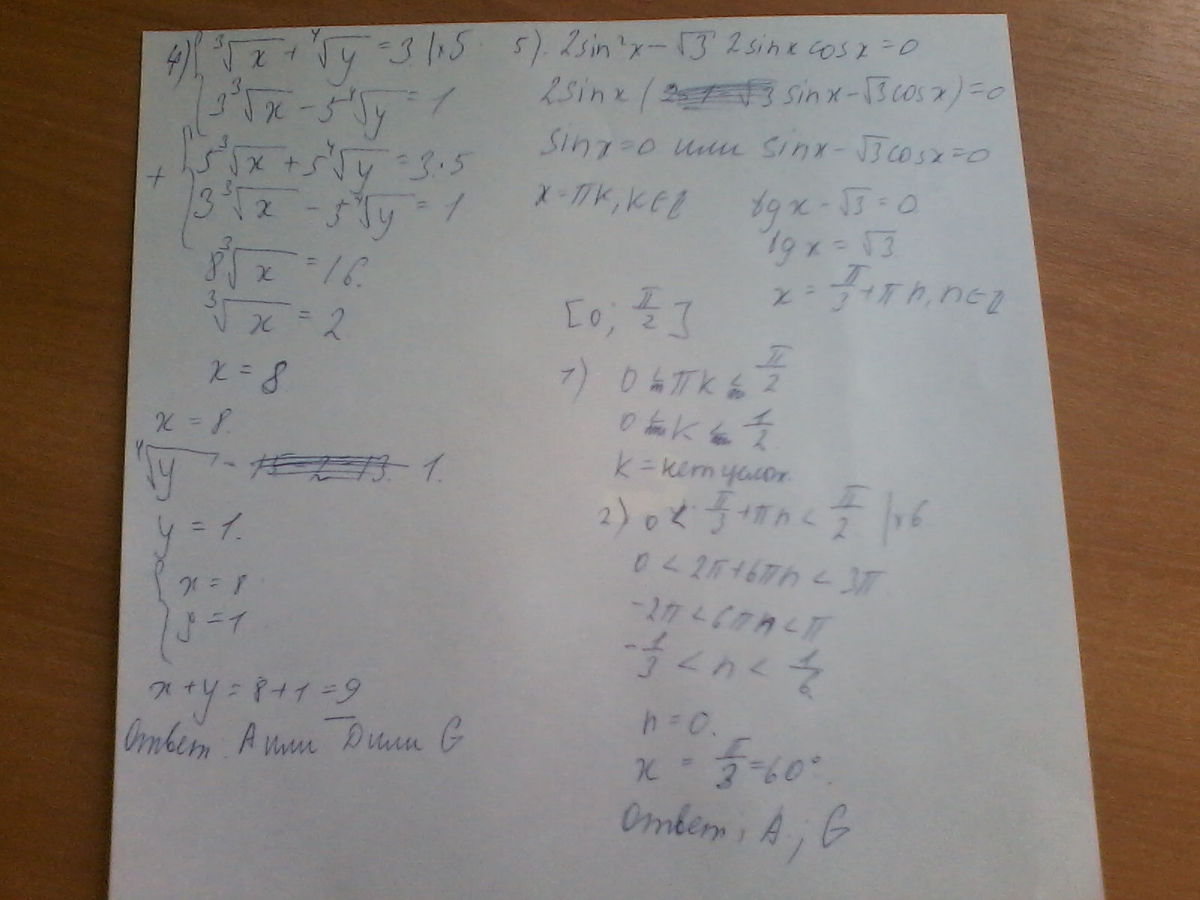 4) { ³√x + ⁴√y = 3 |×5
{ 3³√x − 5⁴√y = 1
+ { 5³√x + 5⁴√y = 3·5
{ 3³√x − 5⁴√y = 1
8³√x = 16.
³√x = 2
x = 8
x = 8.
⁴√y = 1.
y = 1.
{ x = 8
{ y = 1
x + y = 8 + 1 = 9
Ответ. A или D или G
5). 2sin²x − √3 2sinx cosx = 0
2sinx ( sinx − √3 cosx) = 0
sinx = 0 или sinx − √3 cosx = 0
x = πk, k ∈ Z
tg x − √3 = 0
tg x = √3
x = π/3 + πn, n ∈ Z
[0; π/2]
1) 0 < πk < π/2
0 < k < 1/2.
k = нет
2) 0 < π/3 + πn < π/2 |×6
0 < 2π + 6πn < 3π
−2π < 6πn < π
−1/3 < n < 1/6
n = 0.
x = π/3 = 60°.
Ответ: A; G